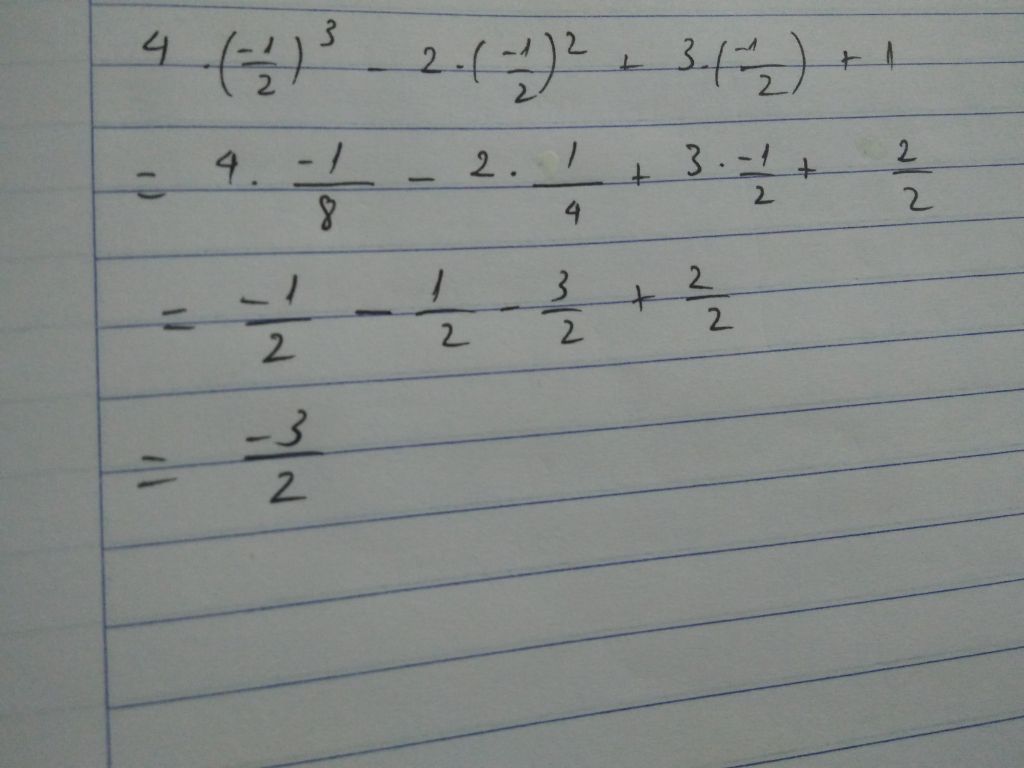 4 · (-1/2)^3 - 2 · (-1/2)^2 + 3 · (-1/2) + 1
= 4 · -1/8 - 2 · 1/4 + 3 · -1/2 + 2/2
= -1/2 - 1/2 - 3/2 + 2/2
= -3/2